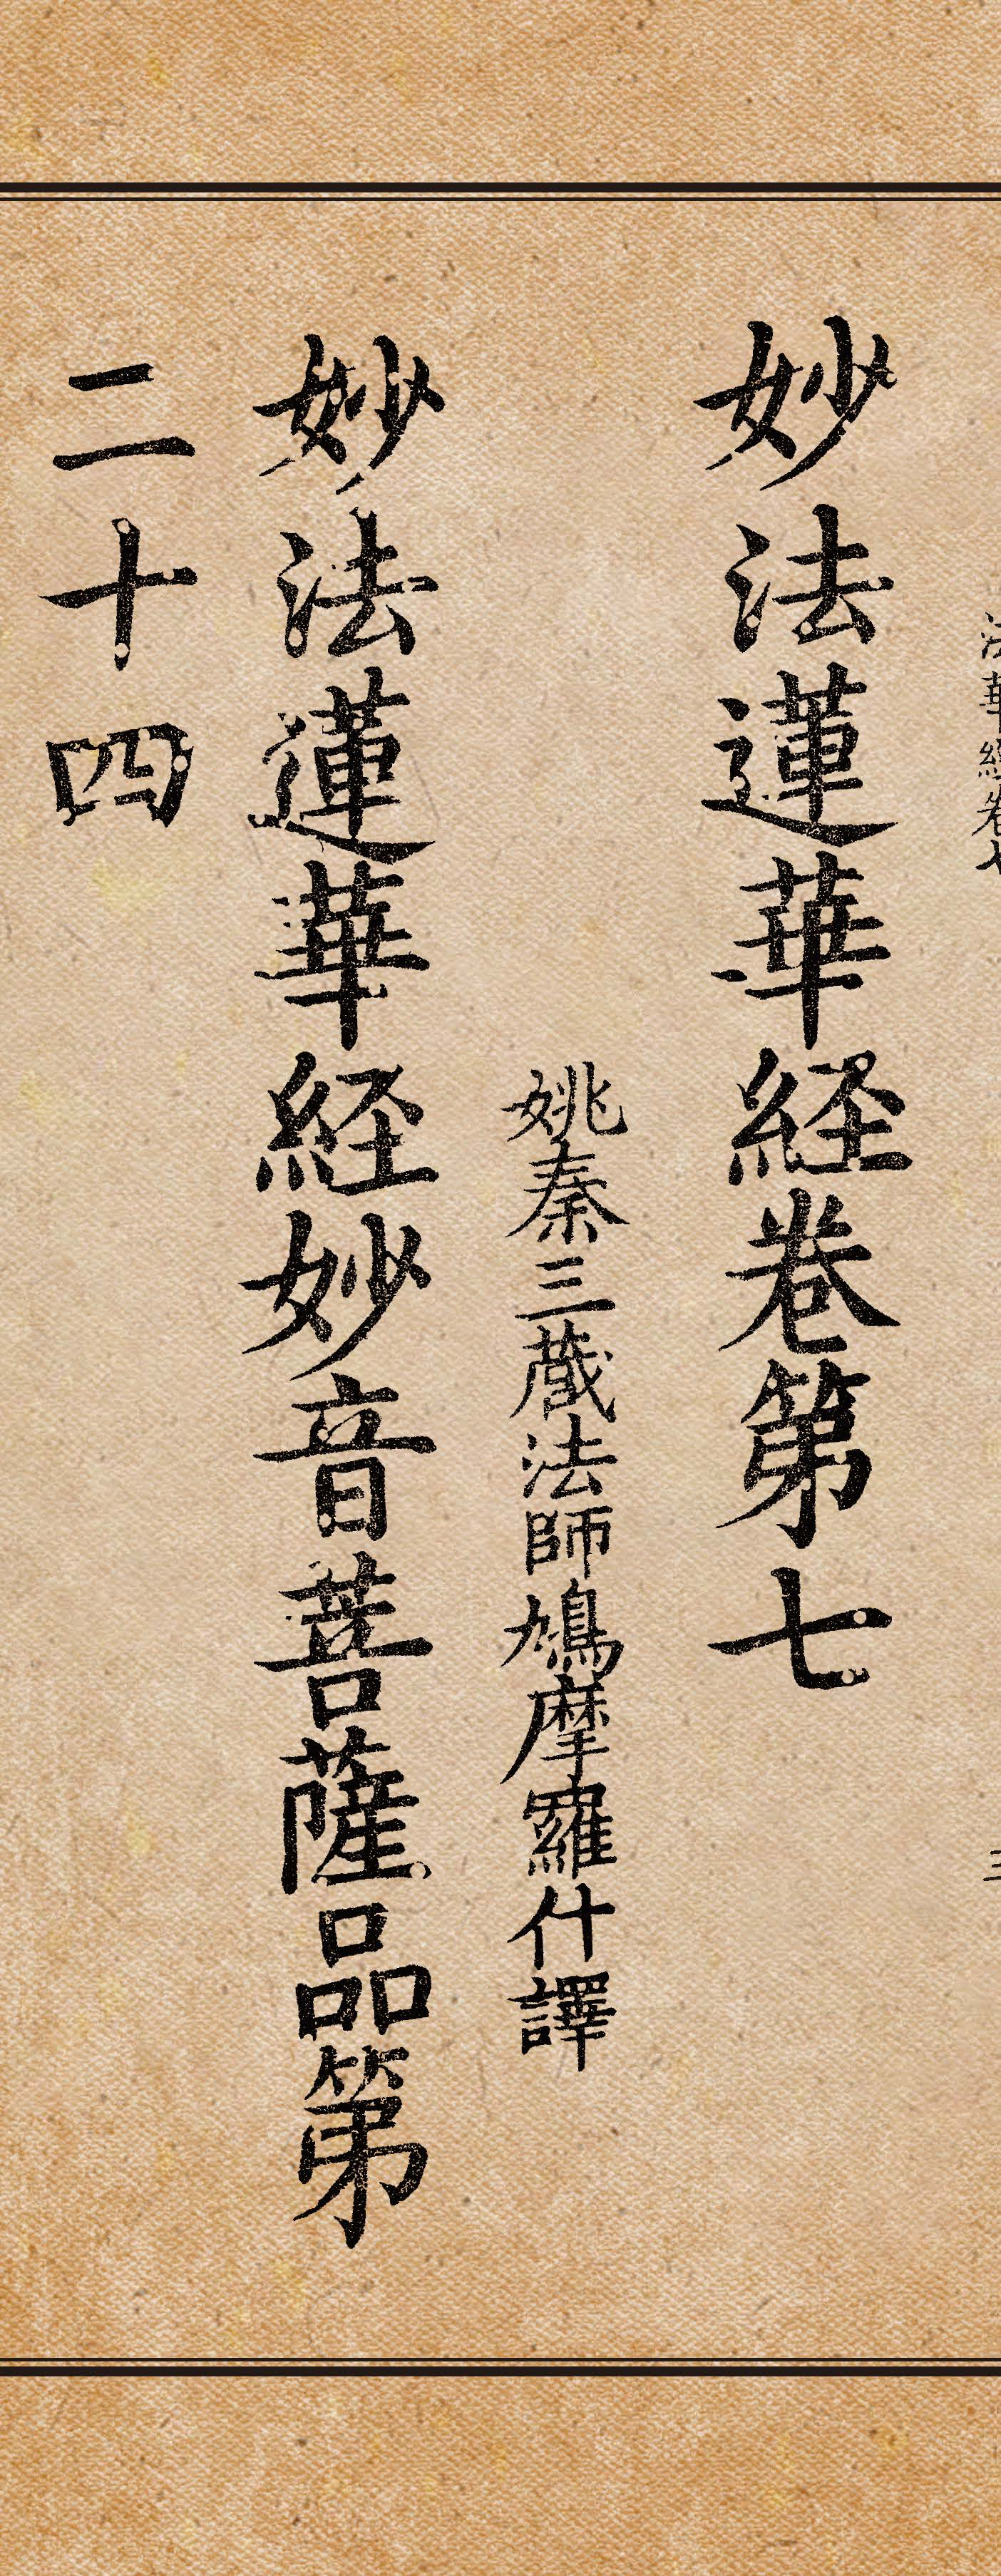 法華經卷七 三
妙法蓮華経卷第七
姚秦三藏法師鳩摩羅什譯
妙法蓮華経妙音菩薩品第
二十四